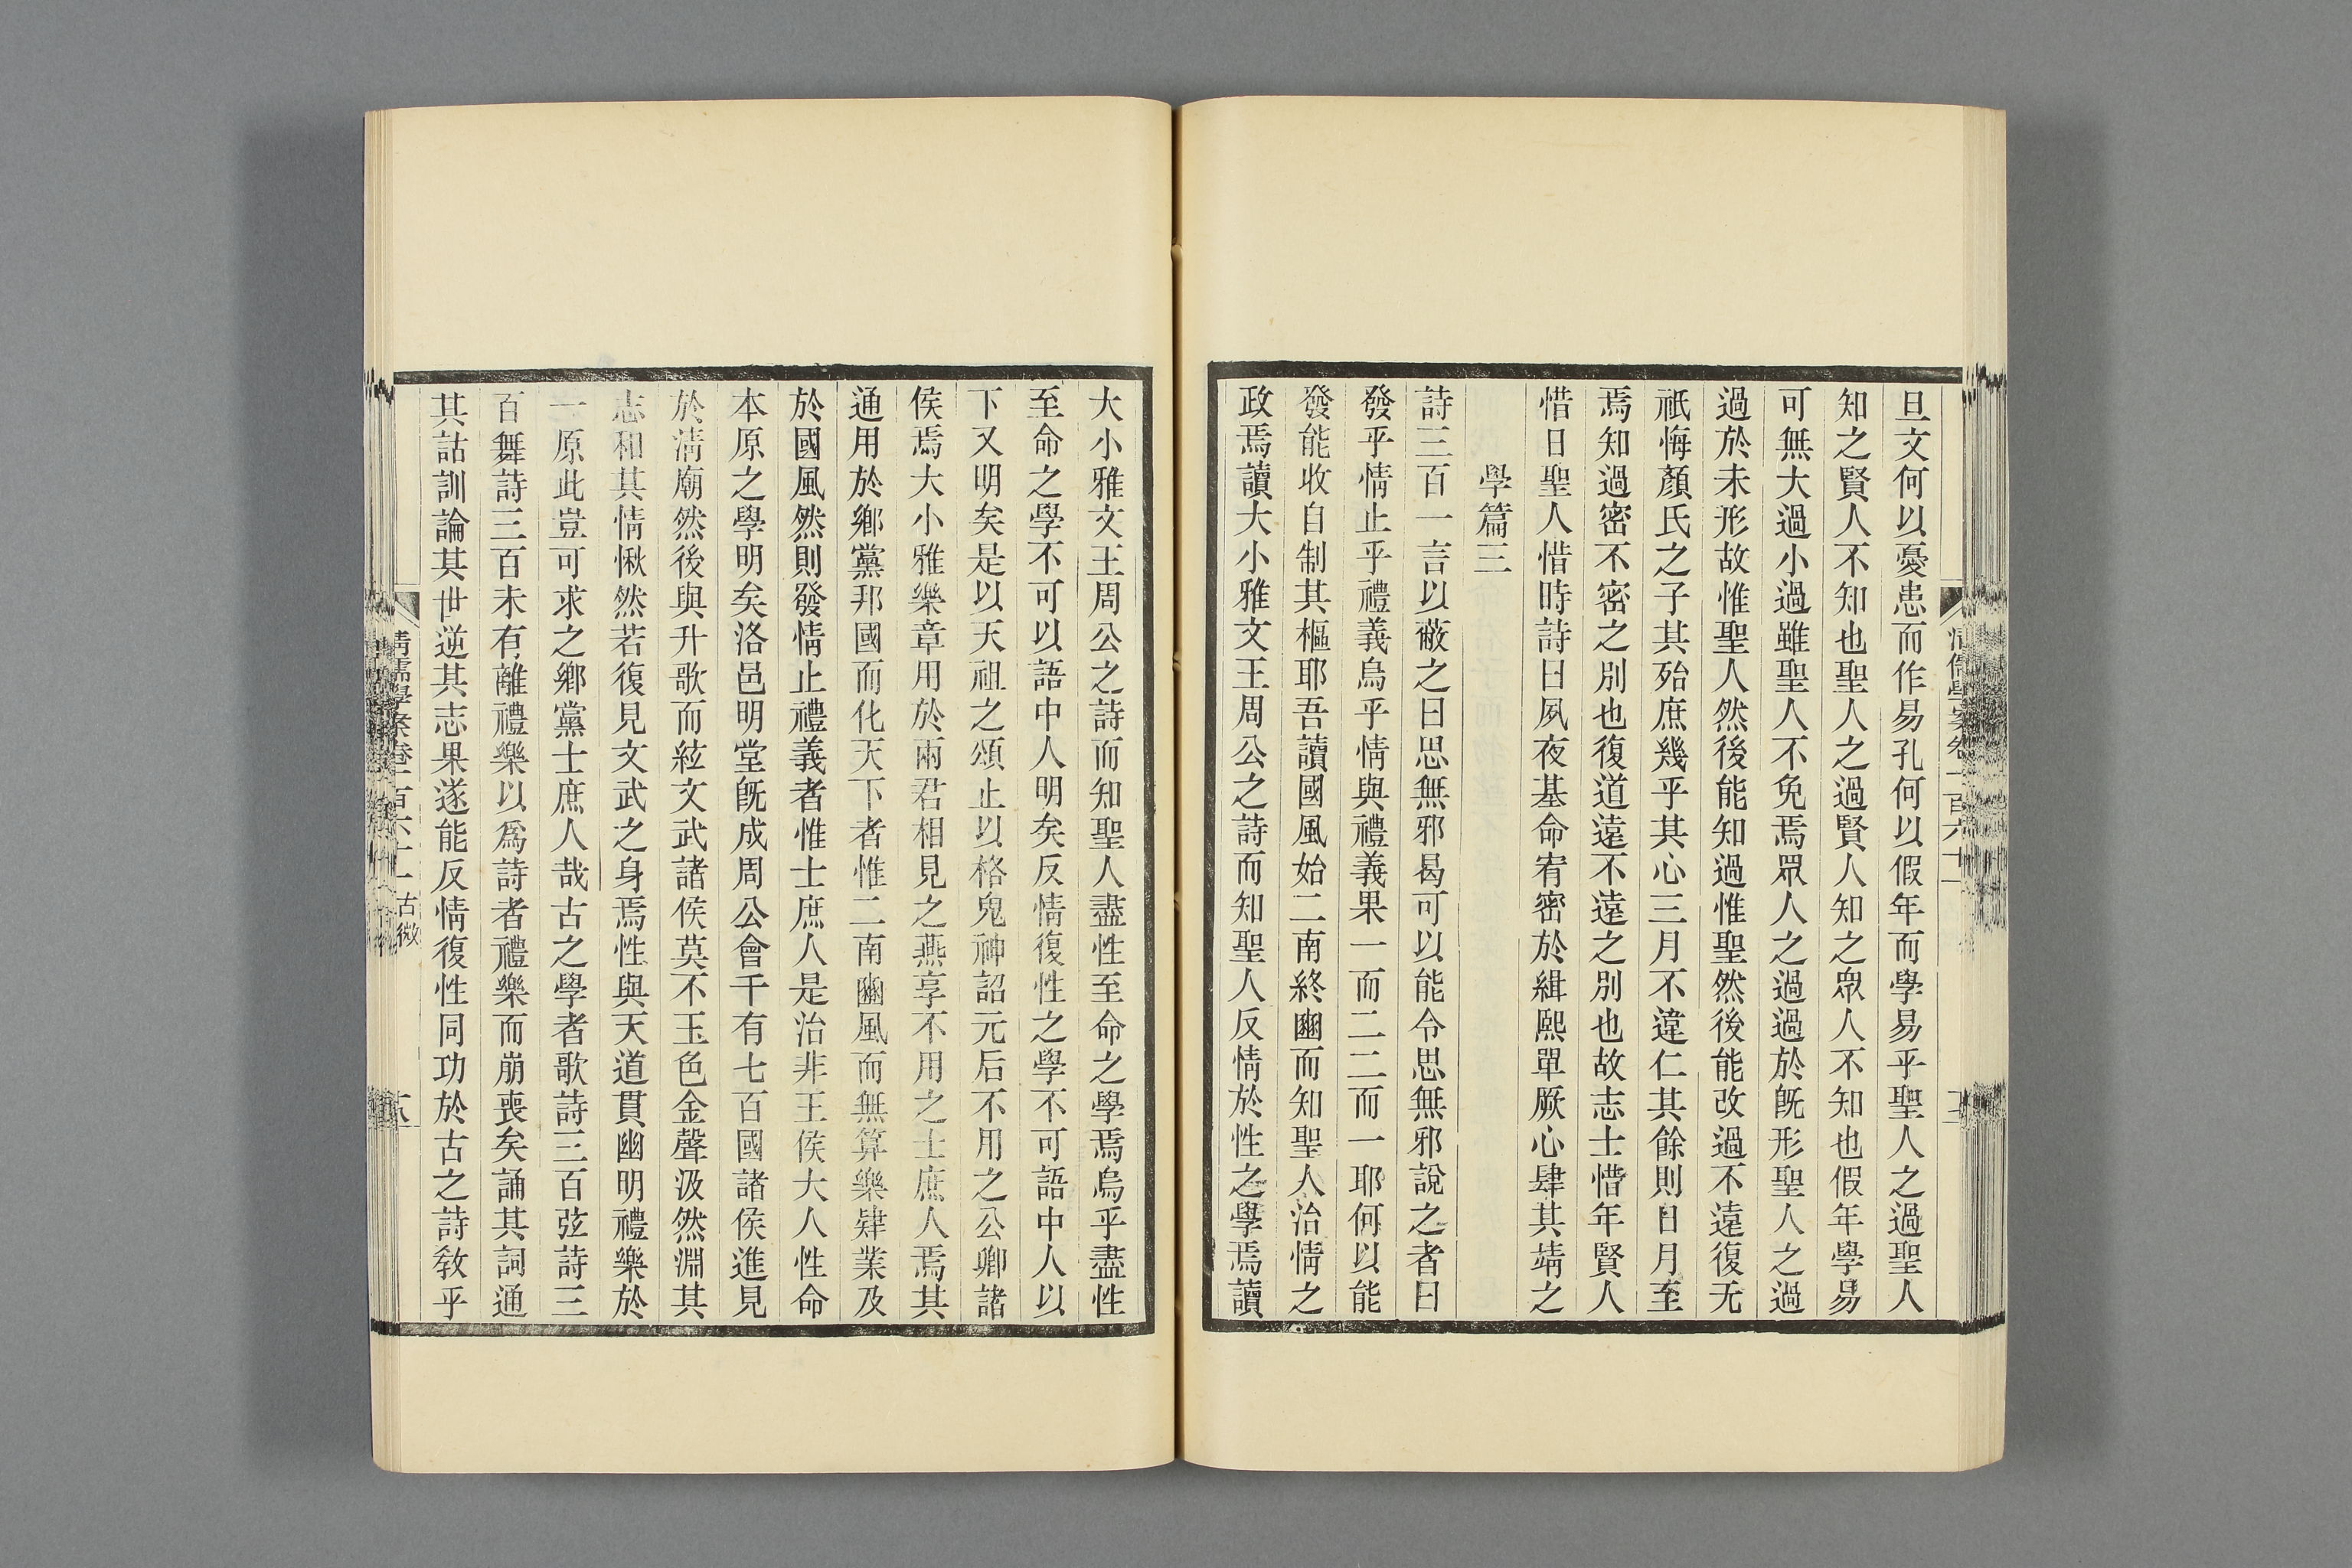 旦文何以憂患而作易孔何以假年而學易乎聖人之過聖人
知之賢人不知也聖人之過賢人知之眾人不知也假年學易
可無大過小過雖聖人不免焉眾人之過過於旣形聖人之過
過於未形故惟聖人然後能知過惟聖然後能改過不遠復无
祇悔顏氏之子其殆庶幾乎其心三月不違仁其餘則日月至
焉知過密不密之別也復道遠不遠之別也故志士惜年賢人
惜日聖人惜時詩曰夙夜基命宥密於緝熙單厥心肆其靖之
學篇三
詩三百一言以蔽之曰思無邪曷可以能令思無邪說之者曰
發乎情止乎禮義烏乎情與禮義果一而二二而一耶何以能
發能收自制其樞耶吾讀國風始二南終豳而知聖人治情之
政焉讀大小雅文王周公之詩而知聖人反情於性之學焉讀
大小雅文王周公之詩而知聖人盡性至命之學焉烏乎盡性
至命之學不可以語中人明矣反情復性之學不可語中人以
下又明矣是以天祖之頌止以格鬼神詔元后不用之公卿諸
侯焉大小雅樂章用於兩君相見之燕享不用之士庶人焉其
通用於鄉黨邦國而化天下者惟二南豳風而無算樂肄業及
於國風然則發情止禮義者惟士庶人是治非王侯大人性命
本原之學明矣洛邑明堂旣成周公會千有七百國諸侯進見
於淸廟然後與升歌而絃文武諸侯莫不玉色金聲汲然淵其
志和其情愀然若復見文武之身焉性與天道貫幽明禮樂於
一原此豈可求之鄉黨士庶人哉古之學者歌詩三百弦詩三
百舞詩三百未有離禮樂以爲詩者禮樂而崩喪矣誦其詞通
其詁訓論其世逆其志果遂能反情復性同功於古之詩敎乎
淸儒學案卷一百六十一 古微